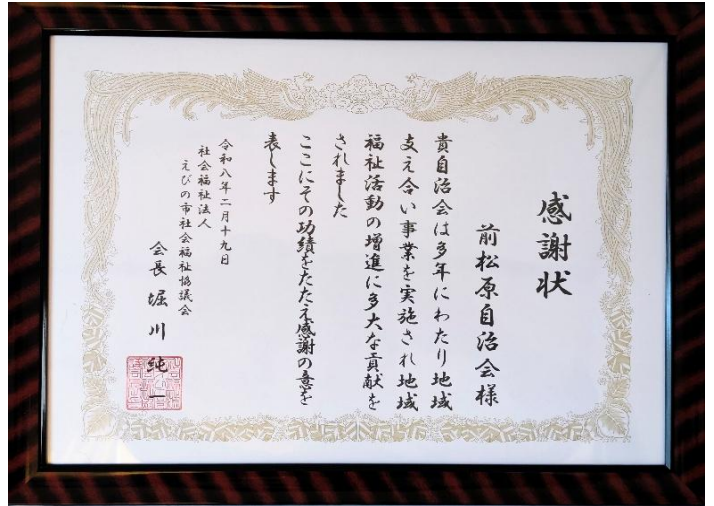 感謝状
前松原自治会様
貴自治会は多年にわたり地域
支え合い事業を実施され地域
福祉活動の増進に多大な貢献を
されました
ここにその功績をたたえ感謝の意を
表します
令和八年二月十九日
社会福祉法人
えびの市社会福祉協議会
会長 堀川純一